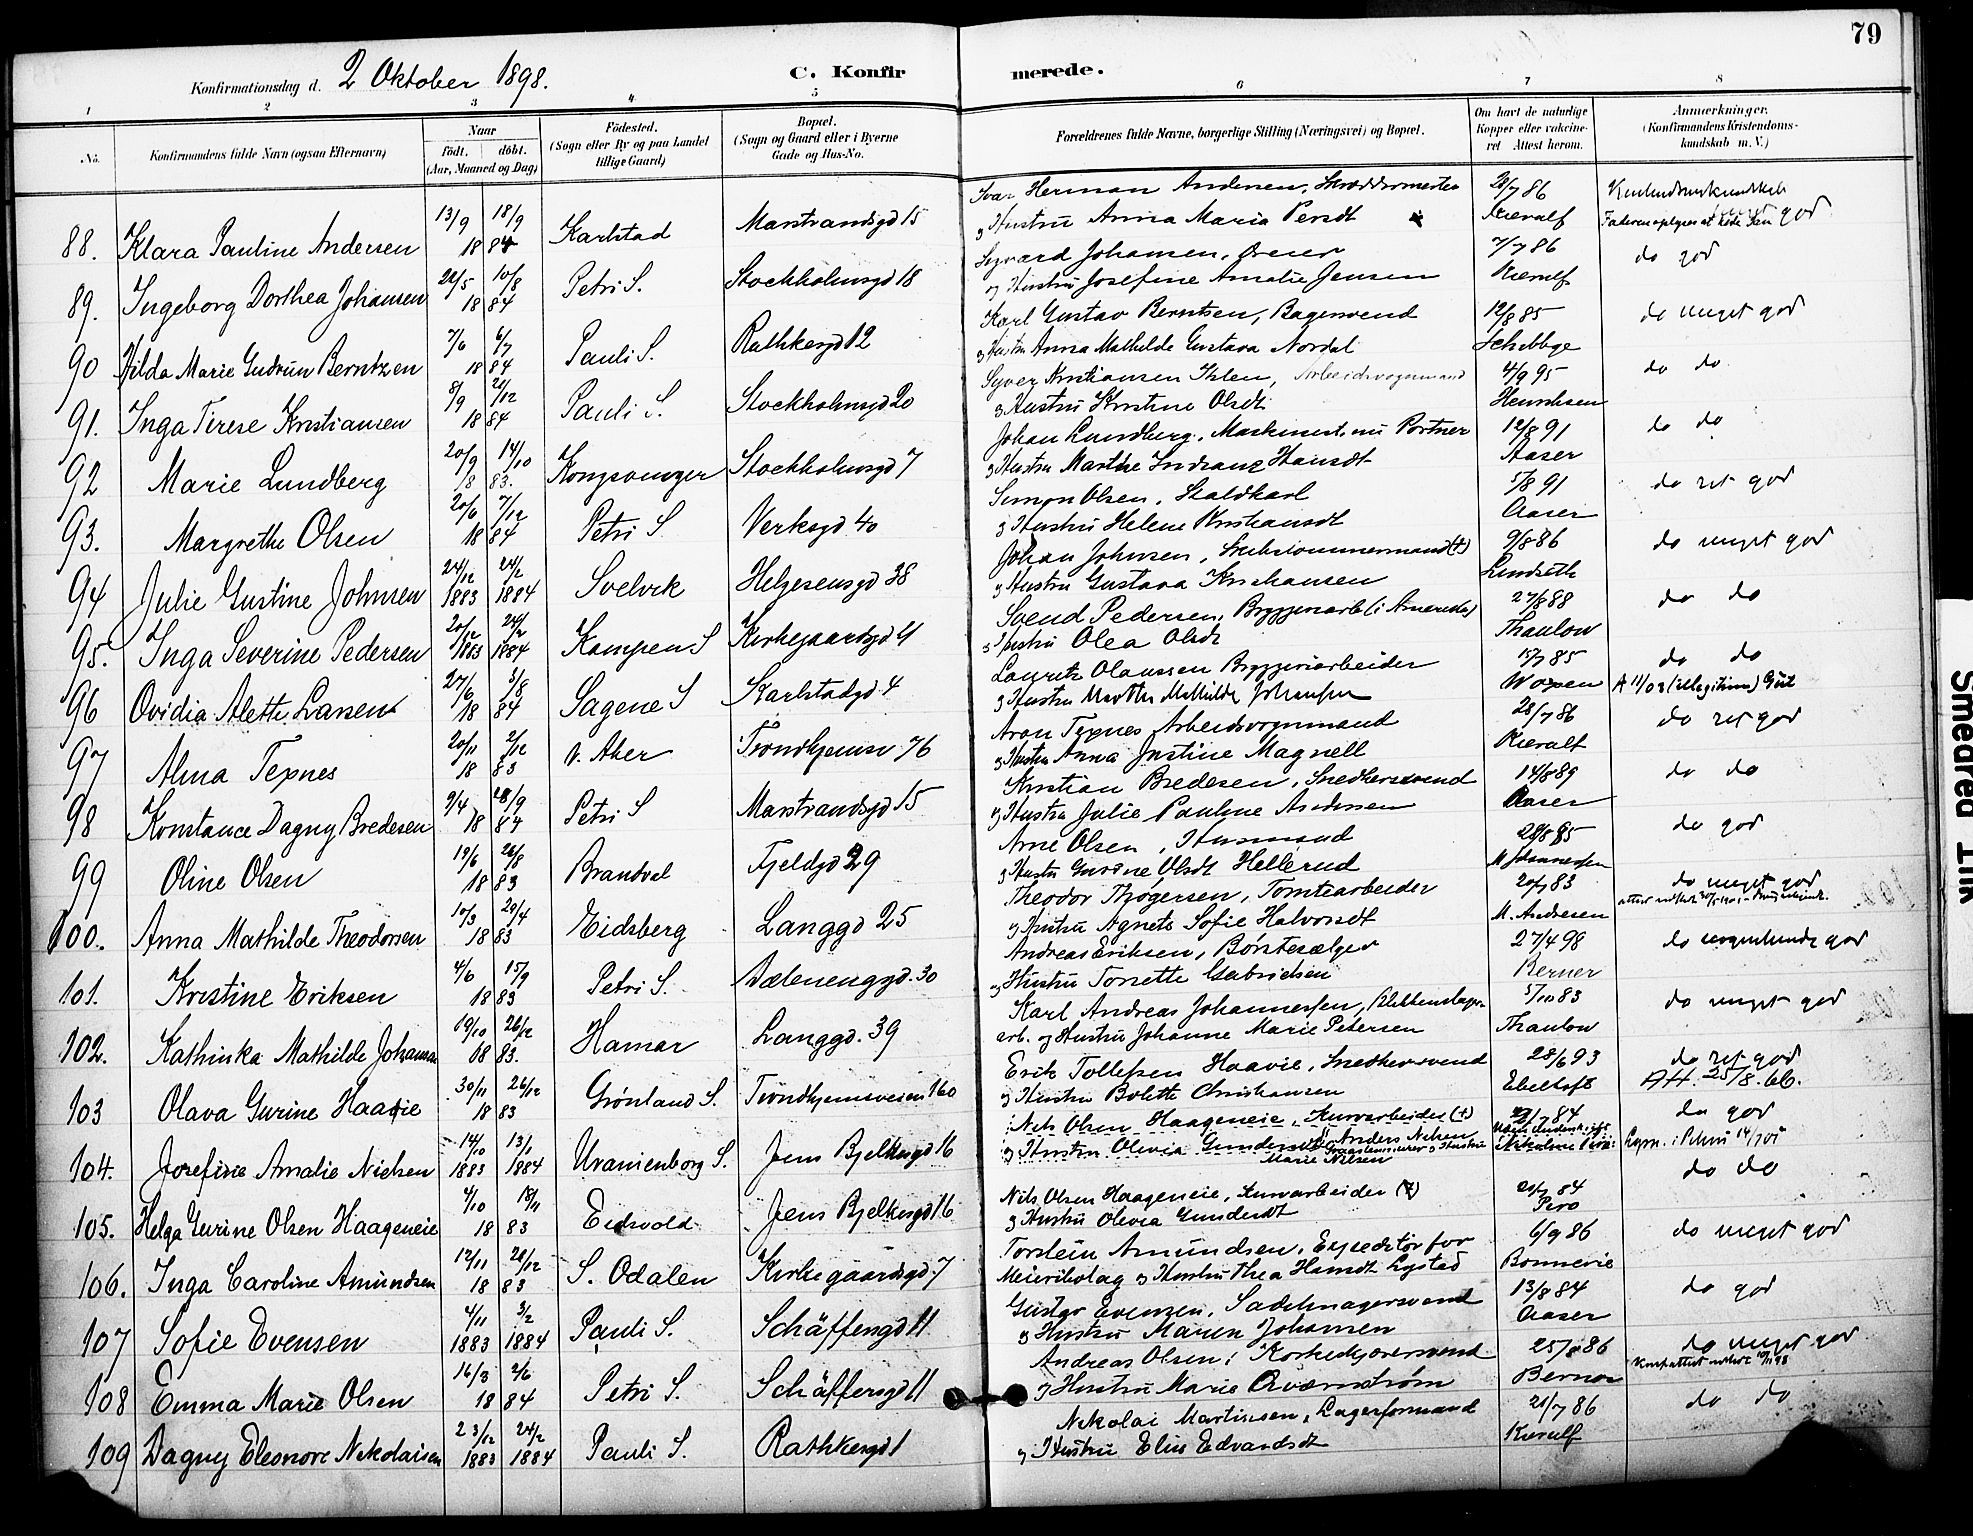 79
Konfirmationsdag d. 2 Oktober 1898. C. Konfir merede.
1 2 3 4 5 6 7 8
No. Konfirmandens fulde Navn (ogsaa Efternavn) Naar Födt. döbt. (Aar, Maaned og Dag) Födested. (Sogn eller By og paa Landet tillige Gaard) Bopæl. (Sogn og Gaard eller i Byerne Gade og Hus-No. Forældrenes fulde Navne, borgerlige Stilling (Næringsvei) og Bopæl. Om havt de naturlige Kopper eller vakcineret Attest herom. Anmærkninger. (Konfirmandens Kristendomskundskab m. V.)
Ivar Herman Andersen, Skræddermester 28/7 86
88. Klara Pauline Andersen 13/9 18/9 1884 Karlstad Marstrandsgd 15 og Hustru Anna Maria Persdt Kierulf god
Sigvard Johansen, 7/7 86 do god
89. Ingeborg Dorthea Johansen 22/5 10/8 1884 Petri S. Stockholmsgd 18 og Hustru Josefine Amalie Jensen Kierulf
Karl Gustav Berntsen, Bagersvend 12/8 85 do meget god
90 Hilda Marie Gudrun Berntzen 7/6 6/7 1884 Pauli S. Rathkesgd 12 og Hustru Anna Mathilde Gustava Nordal Schibbye
Syver Kristiansen Ihlen, Arbeidsvognmand 4/9 95 do do
91. Inga Terese Kristiansen 8/9 21/12 1884 Pauli S. Stockholmsgd 20 og Hustru Kristine Olsdt Henriksen
Johan Lundberg, Maskinist, nu Portner 12/8 91 do do
92 Marie Lundberg 20/9 14/10 1883. Kongsvinger Stockholmsgd 7 og Hustru Marthe Hansdt Aaser
Simon Olsen, Staldkarl 5/8 91 do ret god
93. Margrethe Olsen 20/6 7/12 1884 Petri S Verksgd 40 og Hustru Helene Kristiansdt Aaser
Johan Johnsen, Skibstømmermand (†) 9/8 86 do meget god
94 Julie Gustine Johnsen 24/12 24/2 1883 1884 Svelvik Helgesensgd 38 og Hustru Gustava Kristiansen Lindseth
Svend Pedersen, Bryggeriarb (i Amerika) 27/8 88 do do
95. Inga Severine Pedersen 20/12 24/2 1883 1884 Kampen S Kirkegaardsgd 4 og Hustru Olea Olsdt Thaulow
Lauritz Olaussen Bryggeriarbeider 15/7 85 do do
96 Ovidia Alette Larsen 27/6 3/8 1884 Sagene S Karlstadgd. 4 og Hustru Marthe Mathilde Johansen Woxen A 11/03 (illegitim)
Aron Texnes Arbeidsvognmand 28/7 86 do ret god
97 Alma Texnes 20/11 2/12 1883 V. Aker Trondhjemsv 76 og Hustru Anna Justine Magnell Kierulf
Kristian Bredesen, Snedkersvend 14/8 89 do do
98 Konstance Dagny Bredesen 9/4 28/9 1884 Petri S Marstrandsgd 15 og Hustru Julie Pauline Andersen Aaser
Arne Olsen, Husmand 28/8 85 do god
99 Oline Olsen 19/6 26/8 1883 Brandval Fjeldgd 29 og Hustru Gurine Olsdt Hellerud M. Johannessen
Theodor Thøgersen, Tomtearbeider 20/7 83 do meget god
100. Anna Mathilde Theodorsen 10/3 29/4 1883 Eidsberg Langgd 25 og Hustru Agnete Sofie Halvorsdt M. Andresen
Andreas Eriksen, Børstesælger 27/4 98 do nogenlunde god
101. Kristine Eriksen 4/6 15/9 1883 Petri S. Dælenenggd. 30 og Hustru Torsette Gabrielsen Berner
Karl Andreas Johannessen, 5/10 83 do meget god
102. Kathinka Mathilde Johansen 19/10 26/12 1883. Hamar Langgd. 39 arb. og Hustru Johanne Marie Petersen Thaulow
Erik Tollefsen Haavie, Snedkersvend 28/6 93 do ret god
103 Olava Gurine Haavie 30/11 26/12 1883 Grønland S. Trondhjemsveien 160 og Hustru Bolette Christiansen Ebeltoft Att. 25/8. 66.
Nils Olsen Haageneie, Kurvarbeider (†) 21/7 84 do god
104. Josefine Amalie Nielsen 14/10 13/1 1883 1884 Uranienborg S. Jens Bjelkesgd 16 og Hustru Olivia Gundersdt Anders Nilsen og Hustru Marie Nilsen
do do
Nils Olsen Haageneie, Kurvarbeider (†) 21/7 84
105. Helga Gurine Olsen Haageneie 4/10 18/11 1883 Eidsvold Jens Bjelkesgd 16 og Hustru Olivia Gundersdt Piro
Torstein Amundsen, Expeditør for 6/9 86 do meget god
106. Inga Caroline Amundsen 12/11 28/12 1883 S. Odalen Kirkegaardsgd. 7 Meieribolag og Hustru Thea Hansdt Lystad Bonnevie
Gustav Evensen, Sadelmagersvend 13/8 84 do god
107 Sofie Evensen 4/11 3/2 1883 1884 Pauli S. Schäffersgd 11 og Hustru Maren Johansen Aaser
Andreas Olsen, Korkeskjærersvend 25/8 86 do meget god
108 Emma Marie Olsen 16/3 2/6 1884 Petri S. Schäffersgd 11 og Hustru Marie Qværnstrøm Berner
Nikolai Martinsen, Lagerformand 21/7 86 do do
109 Dagny Eleonore Nikolaisen 23/12 24/2 1883 1884 Pauli S. Rathkesgd 1 og Hustru Elin Edvardsdt Kierulf
Smeared Ink